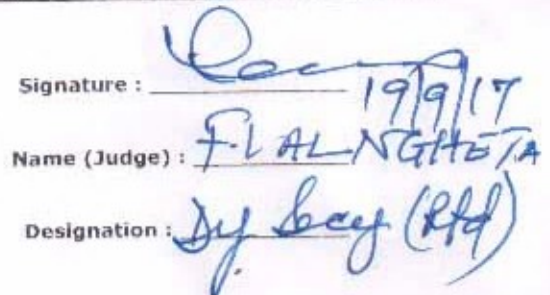 Signature :
19/9/17
Name (Judge) : F. LALNGHETA
Designation : Dy Secy (Rtd)